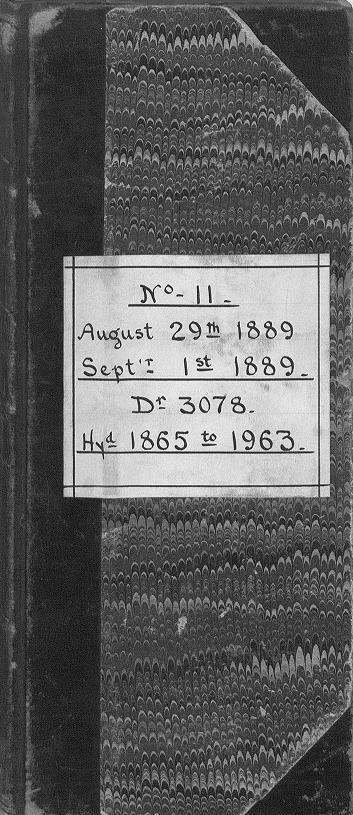 Nº - 11 -
August 29th 1889
Sept'r 1st 1889.
Dr 3078.
Hyd 1865 to 1963.